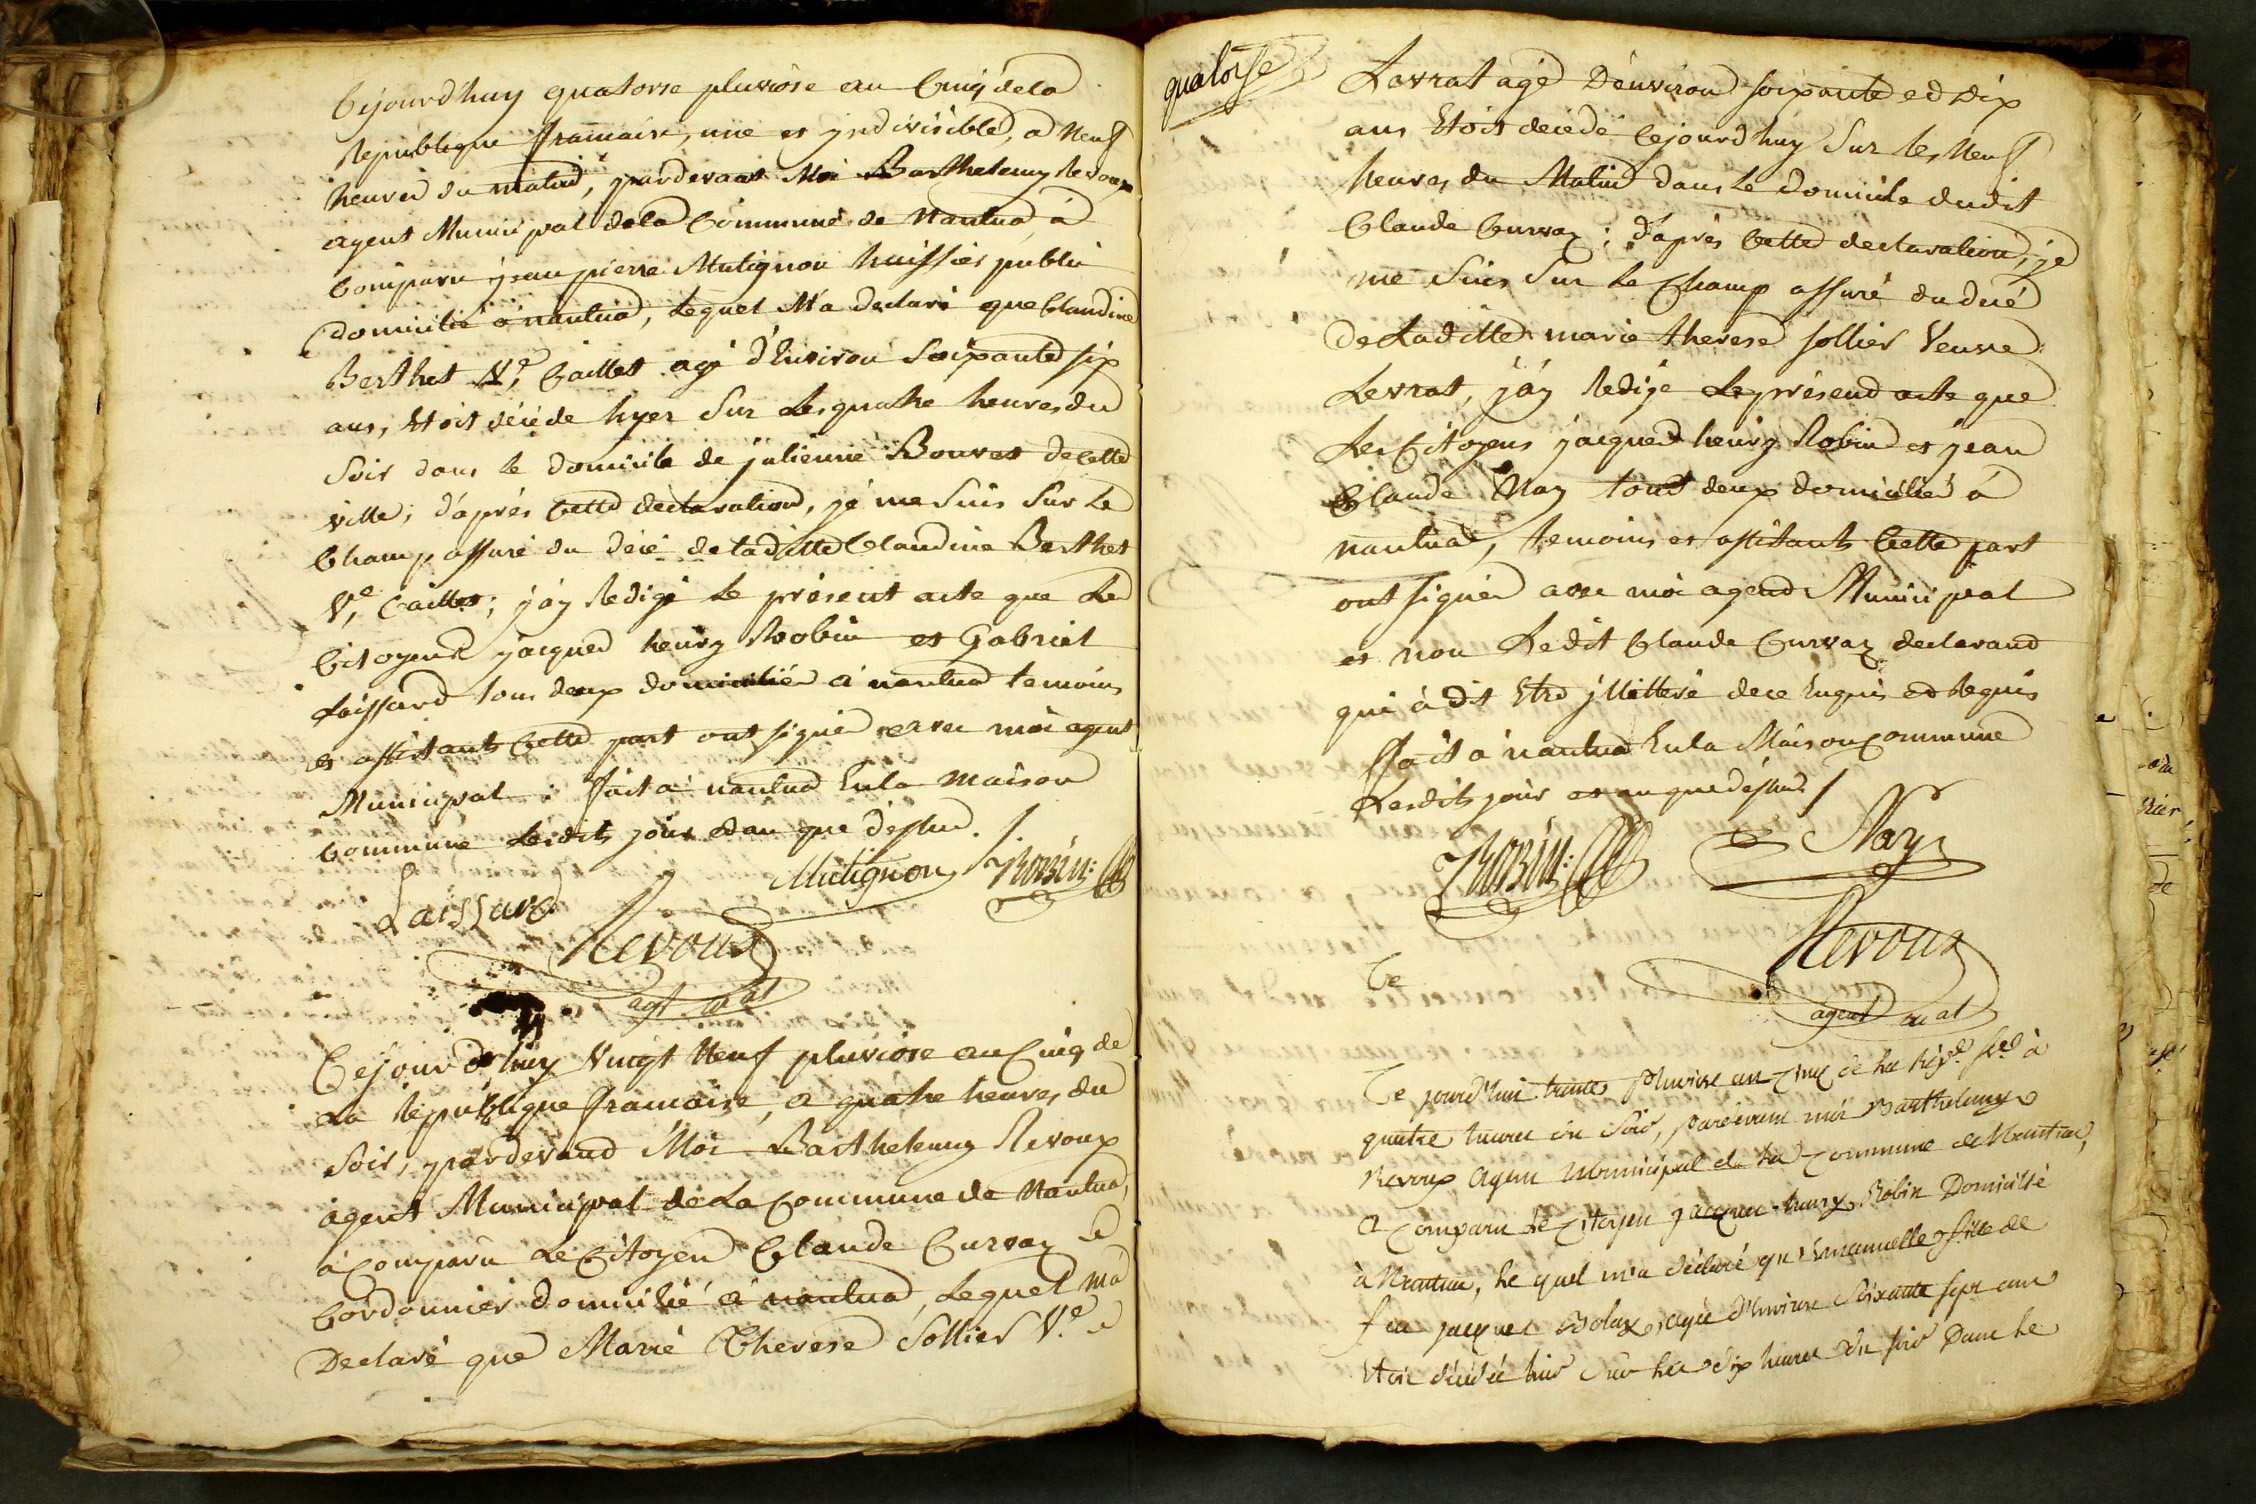 Cejourd'huy quatorse pluviose an Cinq de la
Republique francaise, une et jndivisible, a Neuf
heures du matin, pardevant Moi Barthelemy Revoux
agent Municipal dela Commune de Nantua, à
Comparu jean pierre Mutignon huissier public
domicilié a nantua, Lequel M'a declaré que Claudine
Berthet Ve. Caillet agé d'Environ Soixante six
ans, Etoit décédé hyer Sur Les quatre heures du
Soir dans le domicile de julienne Bouvet de Cette
ville; d'aprés Cette declaration, je me Suis Sur Le
Champ assuré du décé de Laditte Claudine Berthet
Ve. Caillet; j'ay Redigé Le présent acte que Les
Citoyens jacques henry Robin et Gabriel
Laissard tous deux domiciliés a nantua temoins
et assistants Cette part ont signé avec moi agent
Municipal. fait a nantua En la Maison
Commune Lesdits jour et an que dessus ./.
Mutignon Robin
Laissard
Revoux
agt. mal
Cejourd'huy Vingt Neuf pluviose an Cinq de
La République francaise, a quatre heures du
Soir, pardevand Moi Barthelemy Revoux
agent Municipal de La Commune de Nantua,
à Comparu Le Citoyen Claude Curvaz
Cordonnier domicilié à nantua, Lequel ma
Declaré que Marie Therese Sollier Ve.
quatorse
Lavrat agé D'environ soixante et dix
ans Etoit decédé Cejourd'huy Sur les Neuf
heures du Matin dans Le domicile dudit
Claude Curvaz; d'aprés Cette declaration, je
me Suis Sur Le Champ assuré du decé
de Laditte marie therese sollier Veuve
Levrat, j'ay Redigé Le présend acte que
Les Citoyens jacques henry Robin et jean
Claude Nay tous deux domicilié à
nantua, temoins et assistants Cette part
ont signés avec moi agend Municipal
et non Ledit Claude Curvaz declarand
qui à dit Etre jllitteré de ce Enquis et Requis
ffait a nantua En la Maison Commune
Lesdits jour et an que dessus /
Robin Nay
Ce
Revoux
agent mal
Ce jourd'hui trente Pluviose an Cinq de la Répe. fse à
quatre heures du Soir, pardevant moi Barthelemy
Revoux Agent Municipal de La Commune de Nantua,
a Comparu Le Citoyen jacques-henry Robin Domicilié
à Nantua, Le quel m'a déclaré qu'Emanuelle fille de
feu jacques Bolux, agée d'Environ Soixante sept ans
Etoit décédée hier Sur Les dix heures du soir Dans Le